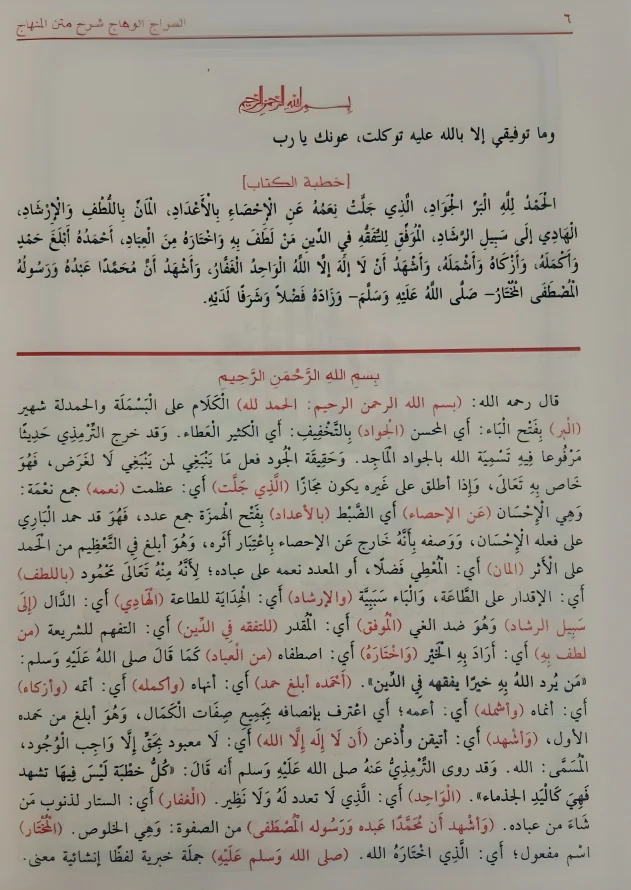 ٦
السراج الوهاج شرح متن المنهاج
بسم الله الرحمن الرحيم
وما توفيقي إلا بالله عليه توكلت، عونك يا رب
[خطبة الكتاب]
الْحَمْدُ لِلَّهِ الْبَرِّ الْجَوَادِ، الَّذِي جَلَّتْ نِعَمُهُ عَنِ الْإِحْصَاءِ بِالْأَعْدَادِ، الْمَانِّ بِاللُّطْفِ وَالْإِرْشَادِ،
الْهَادِي إِلَى سَبِيلِ الرَّشَادِ، الْمُوَفِّقِ لِلتَّفَقُّهِ فِي الدِّينِ مَنْ لَطَفَ بِهِ وَاخْتَارَهُ مِنَ الْعِبَادِ، أَحْمَدُهُ أَبْلَغَ حَمْدٍ
وَأَكْمَلَهُ، وَأَزْكَاهُ وَأَشْمَلَهُ، وَأَشْهَدُ أَنْ لَا إِلَهَ إِلَّا اللَّهُ الْوَاحِدُ الْغَفَّارُ، وَأَشْهَدُ أَنَّ مُحَمَّدًا عَبْدُهُ وَرَسُولُهُ
الْمُصْطَفَى الْمُخْتَارُ- صَلَّى اللَّهُ عَلَيْهِ وَسَلَّمَ- وَزَادَهُ فَضْلاً وَشَرَفًا لَدَيْهِ.
بِسمِ اللهِ الرَّحْمَنِ الرَّحِيمِ
قال رحمه الله: (بسم الله الرحمن الرحيم: الحمد لله) الْكَلَام على الْبَسْمَلَة والحمدلة شهير
(الْبر) بِفَتْح الْبَاء: أي المحسن (الجواد) بِالتَّخْفِيفِ: أي الكثير العَطاء. وَقد خرج التِّرْمِذِي حَدِيثًا
مَرْفُوعا فِيهِ تَسْمِيَة الله بالجواد الْمَاجِد. وَحَقِيقَة الْجُود فعل مَا يَنْبَغِي لمن يَنْبَغِي لَا لغَرَض، فَهُوَ
خَاص بِهِ تَعَالَى، وَإذا أطلق على غَيره يكون مجَازًا (الَّذِي جَلَّت) أَي: عظمت (نعمه) جمع نعْمَة:
وَهِي الْإِحْسَان (عَن الإحصاء) أي الضَّبْط (بالأعداد) بِفَتْح الْهمزَة جمع عدد، فَهُوَ قد حمد الْبَارِي
على فعله الْإِحْسَان، وَوَصفه بِأَنَّهُ خَارج عَن الإحصاء بِاعْتِبَار أَثَره، وَهُوَ أبلغ في التَّعْظِيم من الْحَمد
على الْأَثر (المان) أَي: الْمُعْطِي فَضلًا، أو المعدد نعمه على عباده؛ لِأَنَّهُ مِنْهُ تَعَالَى مَحْمُود (باللطف)
أَي: الإقدار على الطَّاعَة، وَالْبَاء سَبَبِيَّة (والإرشاد) أَي: الْهِدَايَة للطاعة (الْهَادِي) أَي: الدَّال (إِلَى
سَبِيل الرشاد) وَهُوَ ضد الغي (الْمُوفق) أَي: الْمُقدر (للتفقه في الدِّين) أَي: التفهم للشريعة (من
لطف بِهِ) أَي: أَرَادَ بِهِ الْخَيْر (وَاخْتَارَهُ) أَي: اصطفاه (من الْعباد) كَمَا قَالَ صلى اللهُ عَلَيْهِ وَسلم:
«مَن يُرد اللهُ بِهِ خيرًا يفقهه في الدِّين». (أحْمَده أبلغ حمد) أَي: أنهاه (وأكمله) أَي: أتمه (وأزكاه)
أَي: أنماه (وأشمله) أَي: أعمه؛ أي اعْترف بإنصافه بِجَمِيع صِفَات الْكَمَال، وَهُوَ أبلغ من حَمده
الأول، (وَأشْهد) أَي: أتيقن وأُذعن (أَن لَا إِلَه إِلَّا الله) أَي: لَا معبود بِحَقٍّ إِلَّا وَاجِب الْوُجُود،
الْمُسَمَّى: الله. وَقد روى التِّرْمِذِيُّ عَنهُ صلى الله عَلَيْهِ وَسلم أنه قَالَ: «كُلُّ خطْبَة لَيْسَ فِيهَا تشهد
فَهِيَ كَالْيَدِ الجذماء». (الْوَاحِد) أَي: الَّذِي لَا تعدد لَهُ وَلَا نَظِير. (الْغفار) أَي: الستار لذنوب مَن
شَاءَ من عباده. (وَأشْهد أَن مُحَمَّدًا عَبده وَرَسُوله الْمُصْطَفى) من الصفوة: وَهِي الخلوص. (الْمُخْتَار)
اسْم مفعول؛ أَي: الَّذِي اخْتَارَهُ الله. (صلى الله وَسلم عَلَيْهِ) جملَة خبرية لفظًا إنشائية معنى.